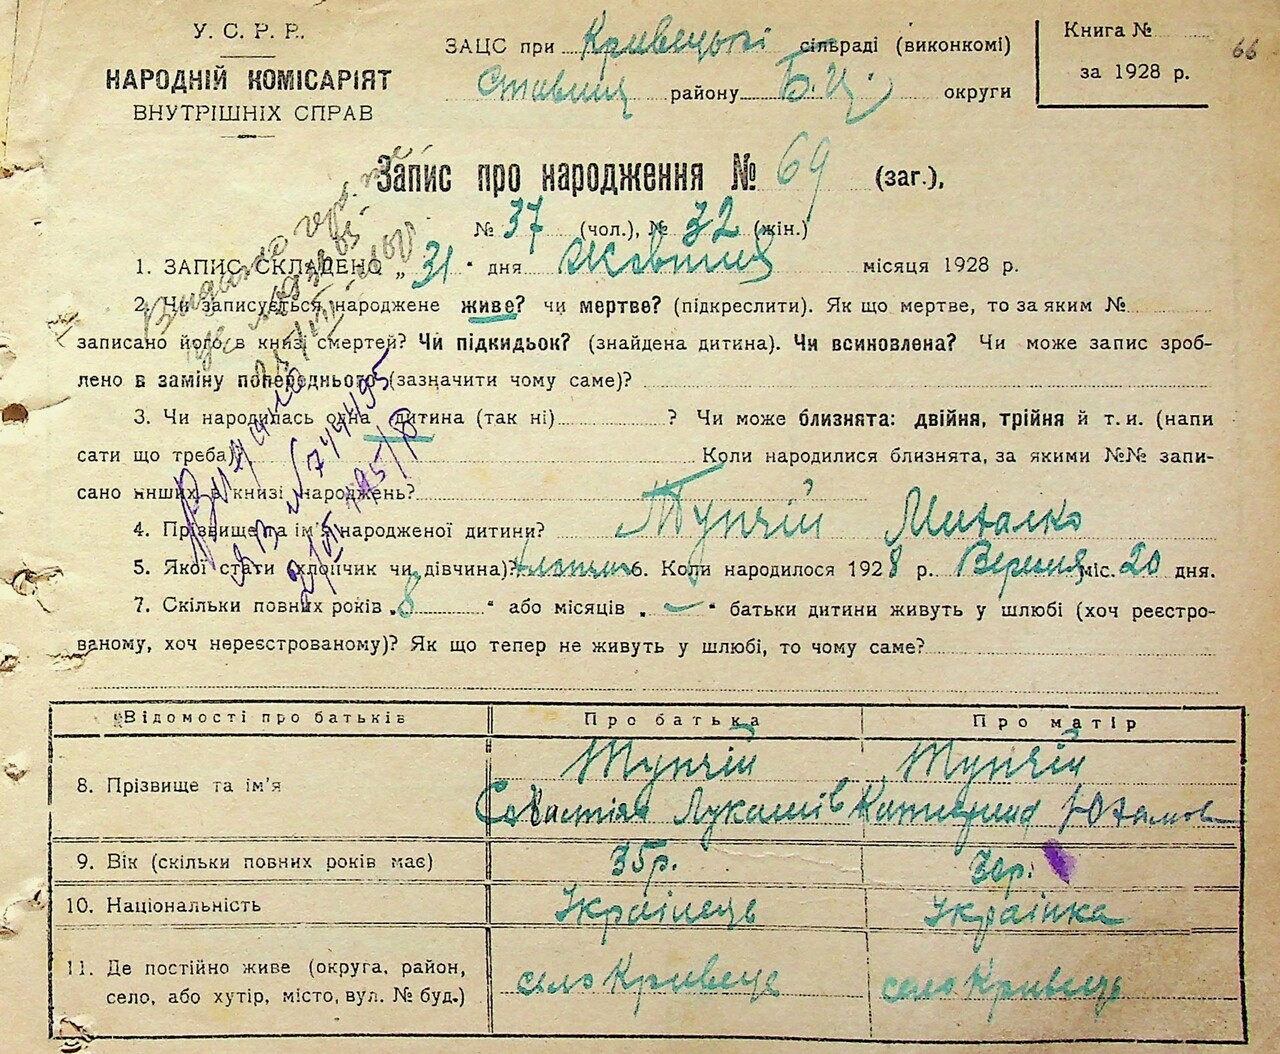 У. С. Р. Р.
НАРОДНІЙ КОМІСАРІЯТ
ВНУТРІШНІХ СПРАВ
ЗАЦС при Кривецькі сільраді (виконкомі)
Ставищ району Б.Ц. округи
Книга №
за 1928 р.
66
Запис про народження № 69 (заг.),
№ 37 (чол.), № 32 (жін.)
1. ЗАПИС СКЛАДЕНО „ 31 " дня Жовтня місяця 1928 р.
2. Чи записується народжене живе? чи мертве? (підкреслити). Як що мертве, то за яким №
записано його в книзі смертей? Чи підкидьок? (знайдена дитина). Чи всиновлена? Чи може запис зроб-
лено в заміну попереднього (зазначити чому саме)?
3. Чи народилась одна дитина (так ні) ? Чи може близнята: двійня, трійня й т. и. (напи
сати що треба) Коли народилися близнята, за якими №№ запи-
сано инших в книзі народжень?
4. Прізвище та ім'я народженої дитини? Тупчій Михалко
5. Якої стати (хлопчик чи дівчина)? хлопчик 6. Коли народилося 1928 р. Вересня міс. 20 дня.
7. Скільки повних років „ 8 " або місяців „ — " батьки дитини живуть у шлюбі (хоч реєстро-
ваному, хоч нереєстрованому)? Як що тепер не живуть у шлюбі, то чому саме?
Видано
№ 744495
Відомості про батьків Про батька Про матір
8. Прізвище та ім'я Тупчій Тупчій
Савастіян Лукашів Катерина
9. Вік (скільки повних років має) 35р. 30р.
10. Національність Українець Українка
11. Де постійно живе (округа, район, село Кривець село Кривець
село, або хутір, місто, вул. № буд.)